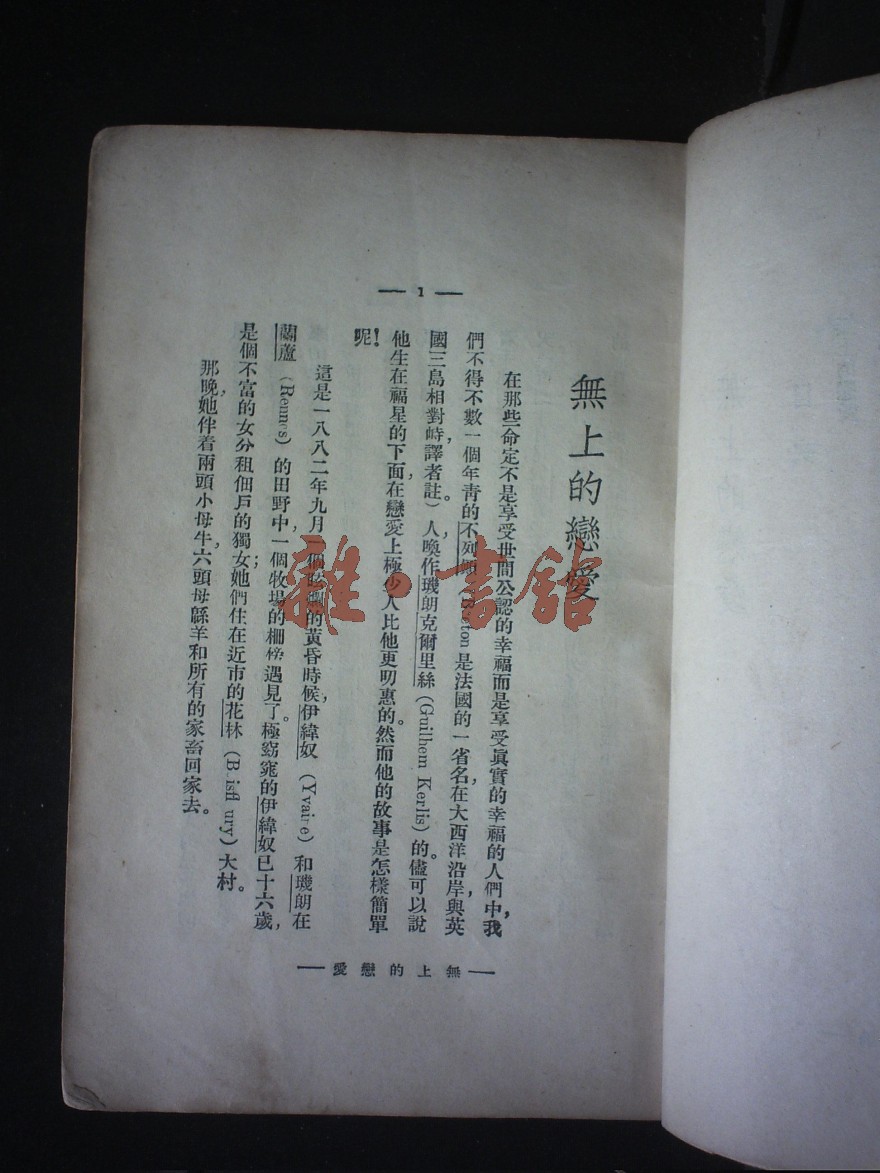 無上的戀愛
在那些命定不是享受世間公認的幸福而是享受眞實的幸福的人們中,我
們不得不數一個年靑的不列顛(Breton 是法國的一省名在大西洋沿岸,與英
國三島相對峙,譯者註。)人,喚作璣朗克爾里絲(Guilhem Kerlis)的。儘可以說
他生在福星的下面,在戀愛上極少人比他更叨惠的。然而他的故事是怎樣簡單
呢!
這是一八八二年九月一個的黃昏時候,伊緯奴(Yvaine)和璣朗在
蘭蘆(Rennes)的田野中,一個牧場的柵傍遇見了。極窈窕的伊緯奴已十六歲,
是個不富的女分租佃戶的獨女;她們住在近市的花林(B isfl ury)大村。
那晚,她伴着兩頭小母牛,六頭母緜羊和所有的家畜回家去。
— 1 —
— 無上的戀愛 —
雜·書館